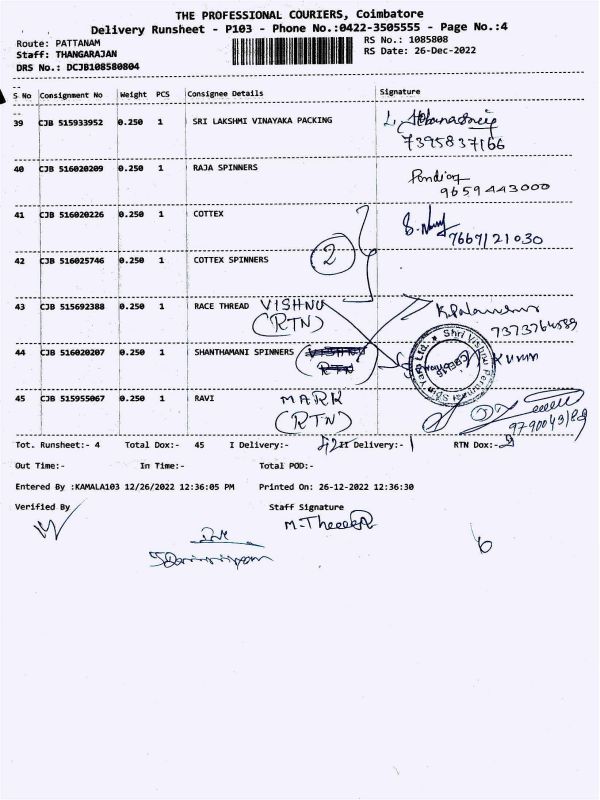 THE PROFESSIONAL COURIERS, Coimbatore
Delivery Runsheet - P103 - Phone No.:0422-3505555 - Page No.:4
Route: PATTANAM
RS No.: 1085808
Staff: THANGARAJAN
RS Date: 26-Dec-2022
DRS No.: DCJB108580804
S No Consignment No Weight PCS Consignee Details Signature
39 CJB 515933952 0.250 1 SRI LAKSHMI VINAYAKA PACKING
7395837166
40 CJB 516020209 0.250 1 RAJA SPINNERS
9659443000
41 CJB 516020226 0.250 1 COTTEX
7667121030
42 CJB 516025746 0.250 1 COTTEX SPINNERS
2
43 CJB 515692388 0.250 1 RACE THREAD VISHNU
(RTN)
7373764589
44 CJB 516020207 0.250 1 SHANTHAMANI SPINNERS
45 CJB 515955067 0.250 1 RAVI MARK
(RTN)
Tot. Runsheet:- 4 Total Dox:- 45 I Delivery:- 42 II Delivery:- 1 RTN Dox:- 2
Out Time:- In Time:- Total POD:-
Entered By :KAMALA103 12/26/2022 12:36:05 PM Printed On: 26-12-2022 12:36:30
Verified By Staff Signature
6